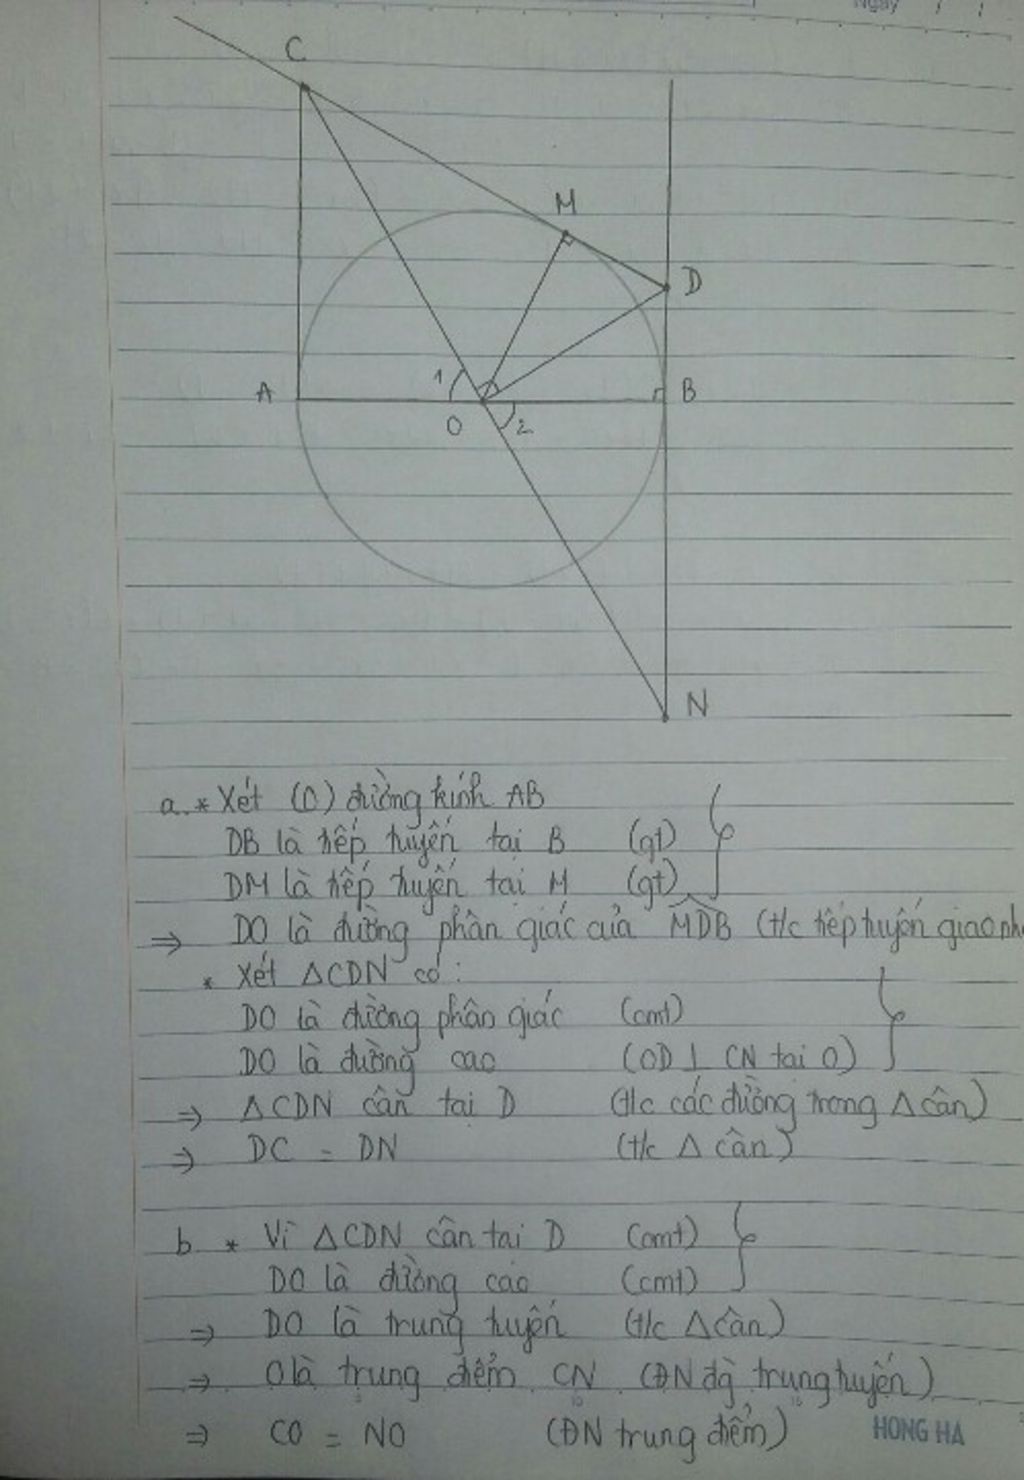 Ngày / /
C
M
D
A
1
B
O
2
N
a. * Xét (O) đường kính AB
DB là tiếp tuyến tại B (gt)
DM là tiếp tuyến tại M (gt)
⇒ DO là đường phân giác của MDB (t/c tiếp tuyến giao nh
* Xét ΔCDN có:
DO là đường phân giác (cmt)
DO là đường cao (OD ⊥ CN tại O)
⇒ ΔCDN cân tại D (t/c các đường trong Δ cân)
⇒ DC = DN (t/c Δ cân)
b * Vì ΔCDN cân tại D (cmt)
DO là đường cao (cmt)
⇒ DO là trung tuyến (t/c Δ cân)
⇒ O là trung điểm CN (ĐN đg trung tuyến)
⇒ CO = NO (ĐN trung điểm)
HONG HA